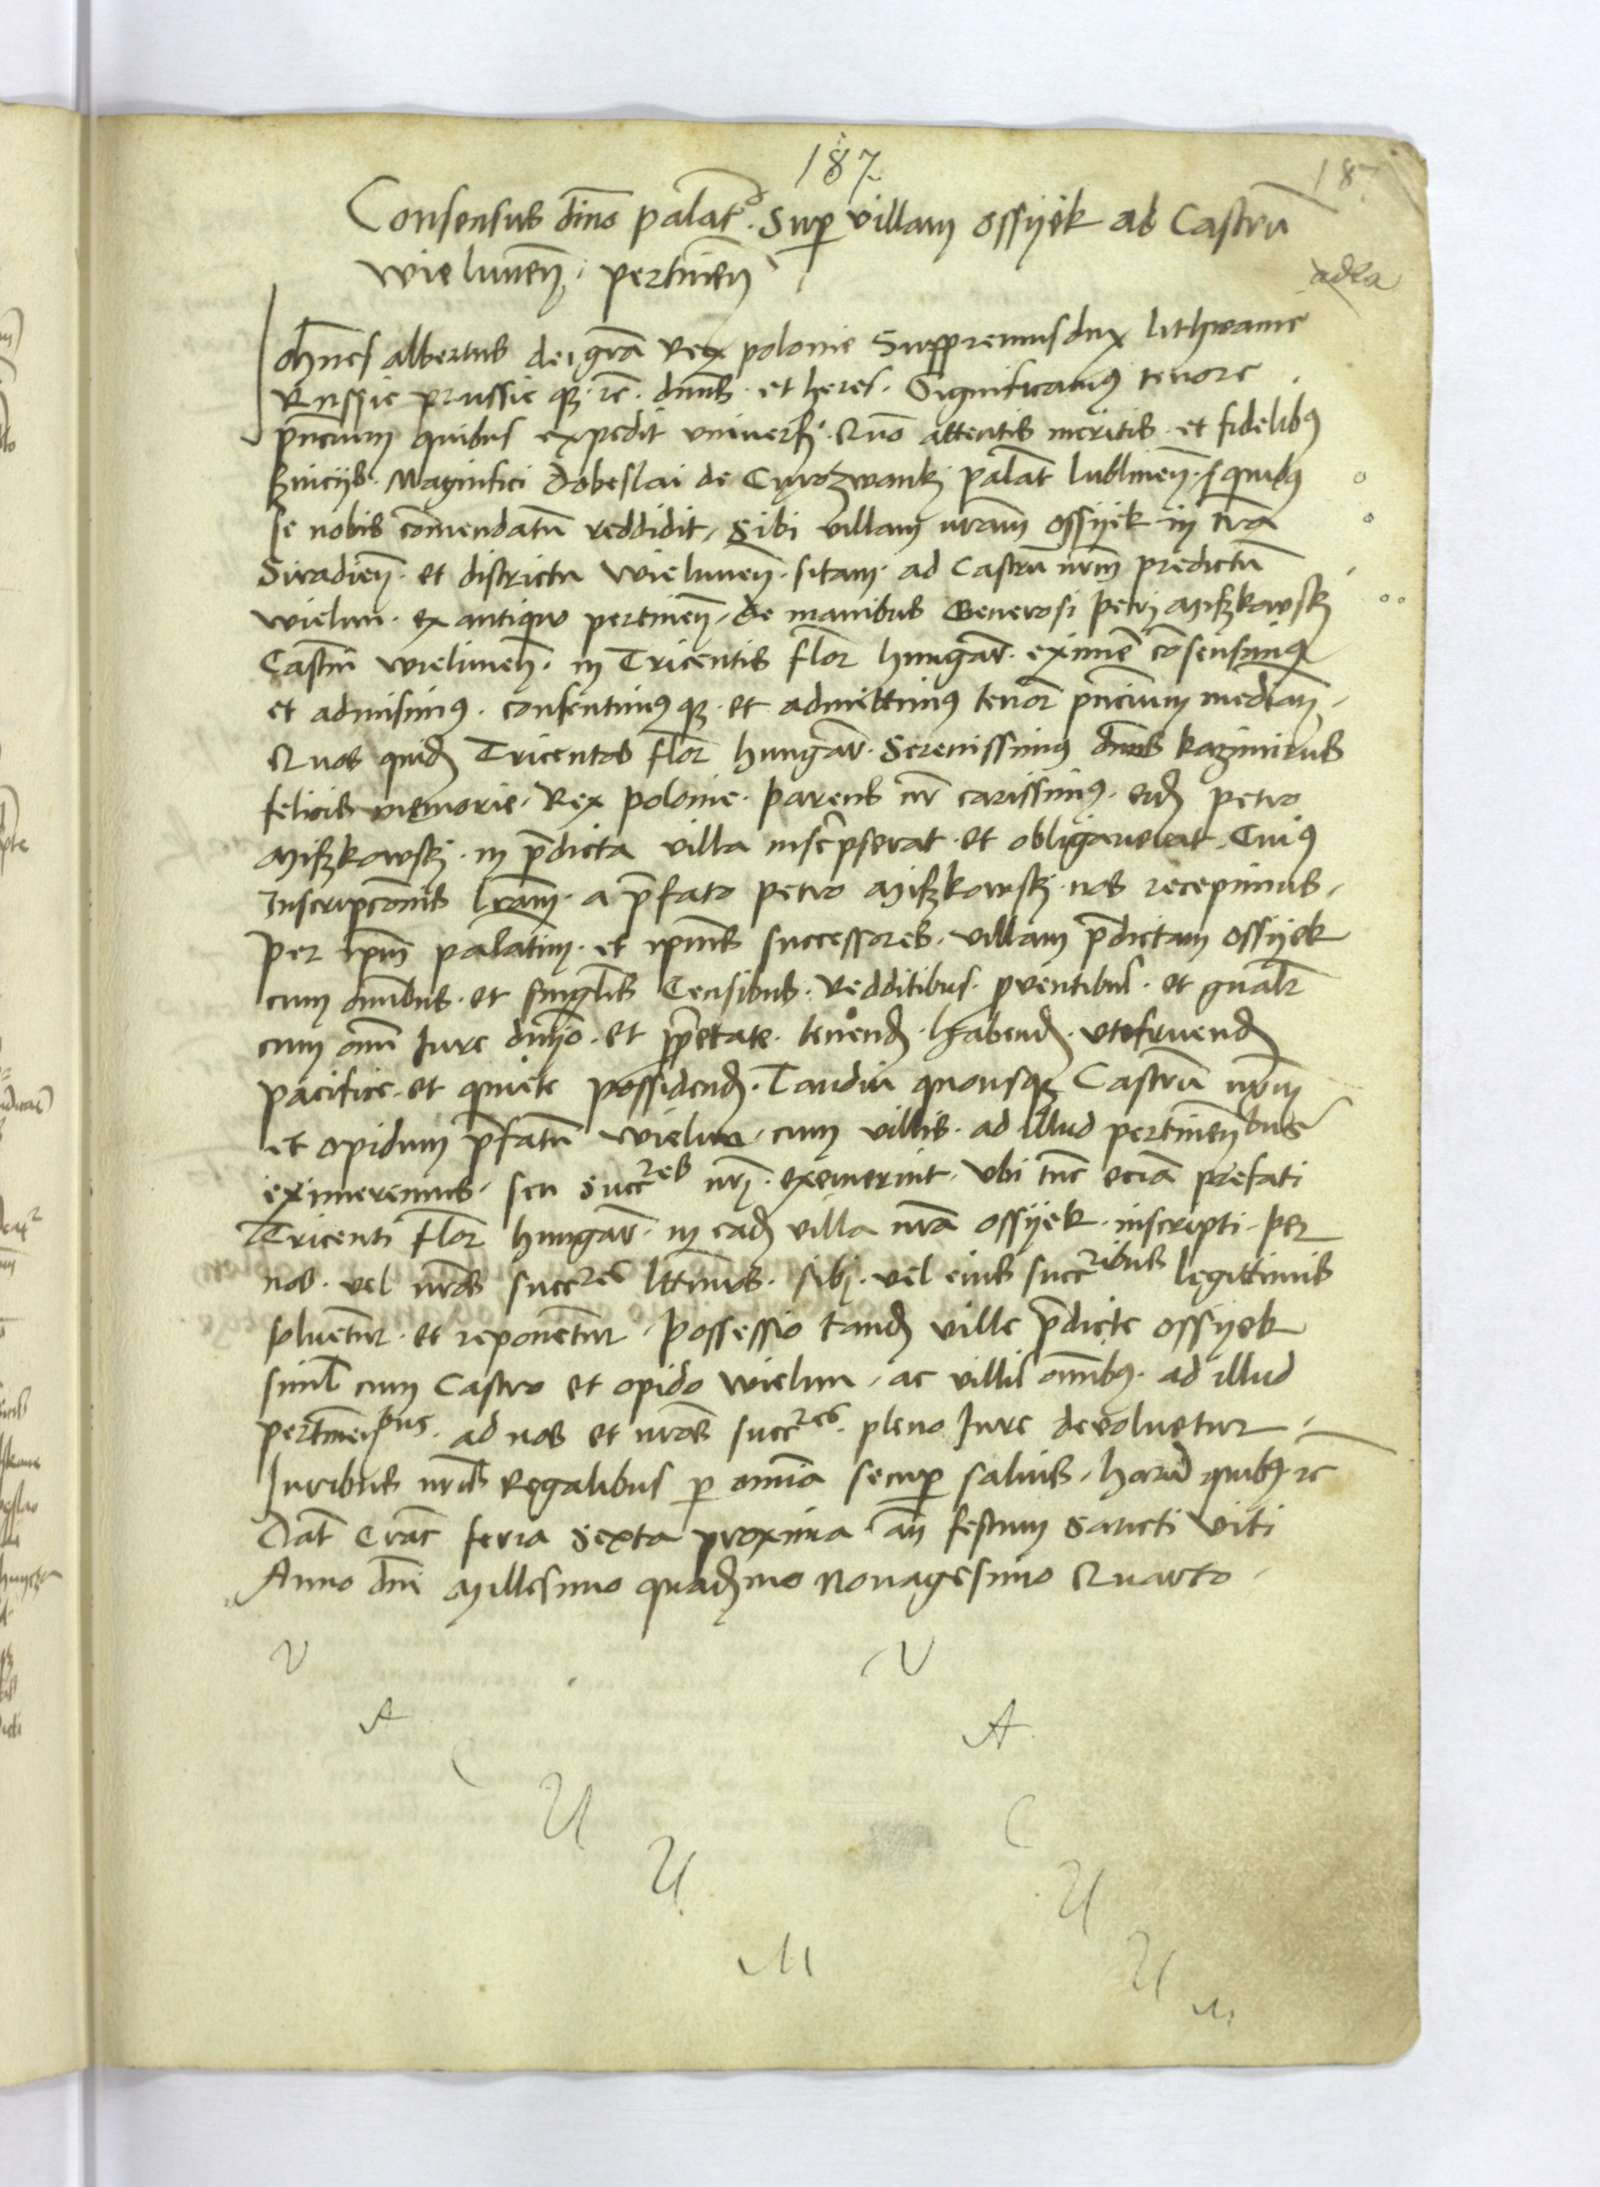 187
187
Consensus dmo palat. Sup villam Ossyek ad Castru
wielunen pertinen
adla
Johnes albertus dei gra Rex polonie Suppremus dux lithwanie
Russie prussie q; rc. dnus et heres. Significamus tenore
pntium quibus expedit universis. Quo attentis meritis et fidelibus
Magnifici Dobeslai de Cuyrozwank palat lublinen quibus
se nobis comendatu reddidit, Sibi villam nram Ossyek in tra
Siradien. et districtu wielunen. sitam. ad Castru nrm predictu
wielun. ex antiquo pertinen, de manibus Generosi Petri Miszkowsky
Castln wielunen. in Tricentis flor hungar. eximere consensimus
et admisimus. consentimus q; et admittimus tenor pntium median.
Quos quid Tricentos flor hungar. Serenissimus dnus kazimirus
felicis memorie. Rex polonie. parens nr carissimus. eid petro
Miszkowsky. in pdicta villa inscripserat et obligaverat. Cuius
Inscripconis lram. a pfato petro Miszkowsky nos recepimus.
per ipm palatinu. et ipius successores. villam pdictam Ossyek
cum omibus. et singlis Censibus. Redditibus. pventibus. et gnalr
cum omi Iure dnio. et pprietate. tenend. habend. utifruend
pacifice. et quiete possidend. Tamdiu quousq; Castru nrm
et opidum pfatu wielun. cum villis. ad illud pertinen bus
eximeremus. seu succres nri. exemerint. Ubi tuc ecia prefati
Tricenti flor hungar. in ead villa nra Ossyek. inscripti. per
nos. vel nros succres lttimos. sibi. vel eius succribus legittimis
solventur. et reponentur. possessio tand ville pdicte Ossyek
siml cum Castro et opido wielun, ac villis omibus. ad illud
pertinen bus. ad nos et nros succres. pleno Iure devoluetur.
Iuribus nris Regalibus p omia semp salvis. haru quibus rc
Dat Crac feria Sexta proxima an festum Sancti Viti
Anno dni Millesimo quadmo Nonagesimo Quarto.
V V
A A
C
U C
U U
M U
M